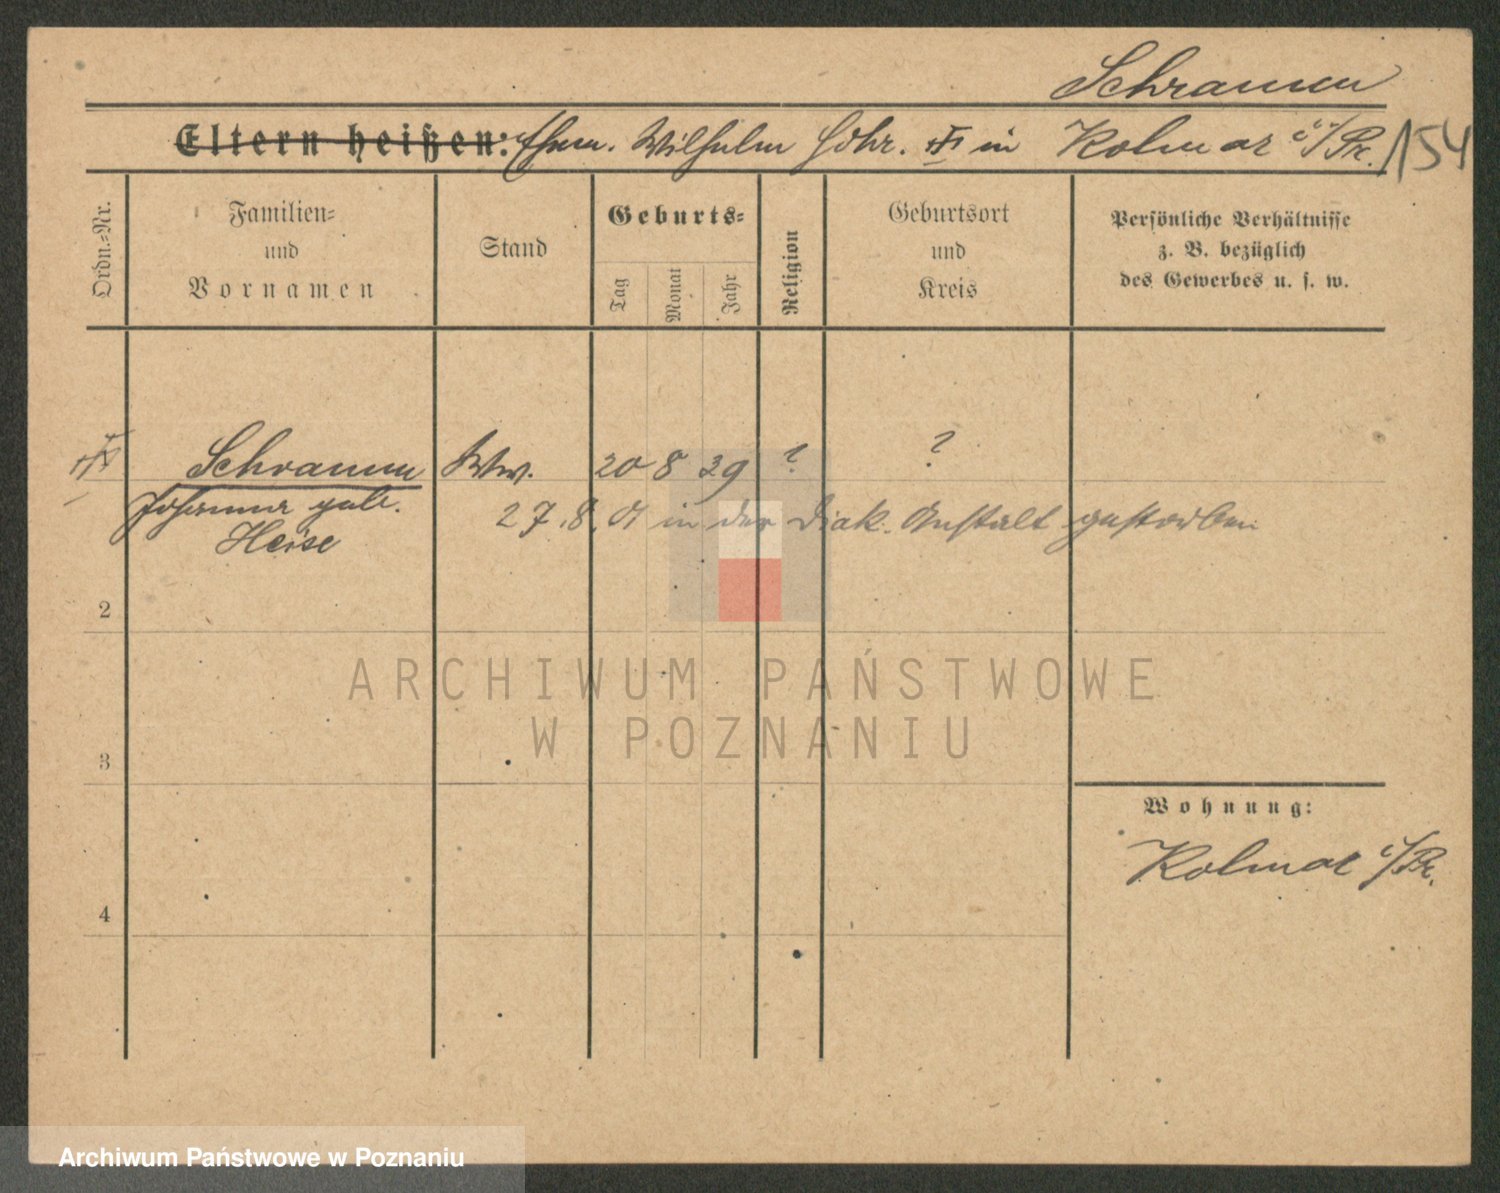 Schramm
Eltern heißen: Ehem. Wilhelm in Kolmar i/Pr. 154
Ordn.=Nr.
Familien=
und
Vornamen
Stand
Geburts=
Tag
Monat
Jahr
Religion
Geburtsort
und
Kreis
Persönliche Verhältnisse
z. B. bezüglich
des Gewerbes u. s. w.
Schramm Ww. 20 8 29 ? ?
Johanna geb.
Heise
27.8. in der Diak. Anstalt gestorben
2
3
4
Wohnung:
Kolmar i/Pr.
ARCHIWUM PAŃSTWOWE
W POZNANIU
Archiwum Państwowe w Poznaniu